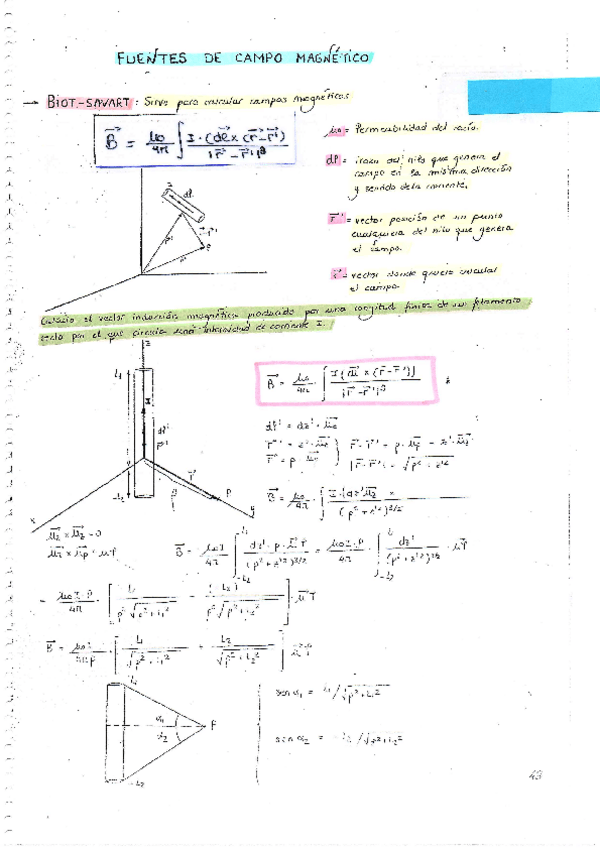 FUENTES DE CAMPO MAGNÉTICO
→ BIOT-SAVART: Sirve para calcular campos magnéticos
B⃗ = μ₀/4π ∫ I·(dl⃗ × (r⃗ - r⃗'))/|r⃗ - r⃗'|³
μ₀ = Permeabilidad del vacío.
dl' = trozo del hilo que genera el
campo en la misma dirección
y sentido de la corriente.
r⃗' = vector posición de un punto
cualquiera del hilo que genera
el campo.
r⃗ = vector donde quiero calcular
el campo.
z
dl
r⃗ - r⃗'
r'
P
Cálculo el vector inducción magnética producido por una longitud finita de un filamento
recto por el que circula una intensidad de corriente I.
z
L₁
I
dl'
r'
-L₂
r⃗
P
ρ
x
y
B⃗ = μ₀/4π · ∫ I(dl⃗ × (r⃗ - r⃗'))/|r⃗ - r⃗'|³
dl' = dz'·u⃗z
r⃗' = z'·u⃗z
r⃗ = ρ·u⃗r
r⃗ - r⃗' = ρ·u⃗r - z'·u⃗z
|r⃗ - r⃗'| = √ρ² + z'²
B⃗ = μ₀/4π · ∫ I·(dz' u⃗z ×
(ρ² + z'²)^3/2
u⃗z × u⃗z = 0
u⃗z × u⃗ρ = u⃗φ
B⃗ = μ₀I/4π ∫ dz'·ρ·u⃗φ/(ρ² + z'²)^3/2 = μ₀I·ρ/4π · ∫ dz'/(ρ² + z'²)^3/2 · u⃗φ
= μ₀I·ρ/4π · [L₁/ρ²√ρ² + L₁² - (-L₂)/ρ²√ρ² + L₂²] · u⃗φ
B⃗ = μ₀I/4πρ · [L₁/√ρ² + L₁² + L₂/√ρ² + L₂²] u⃗φ
L₁
α₁
α₂
P
-L₂
sen α₁ = L₁/√ρ² + L₁²
sen α₂ = L₂/√ρ² + L₂²